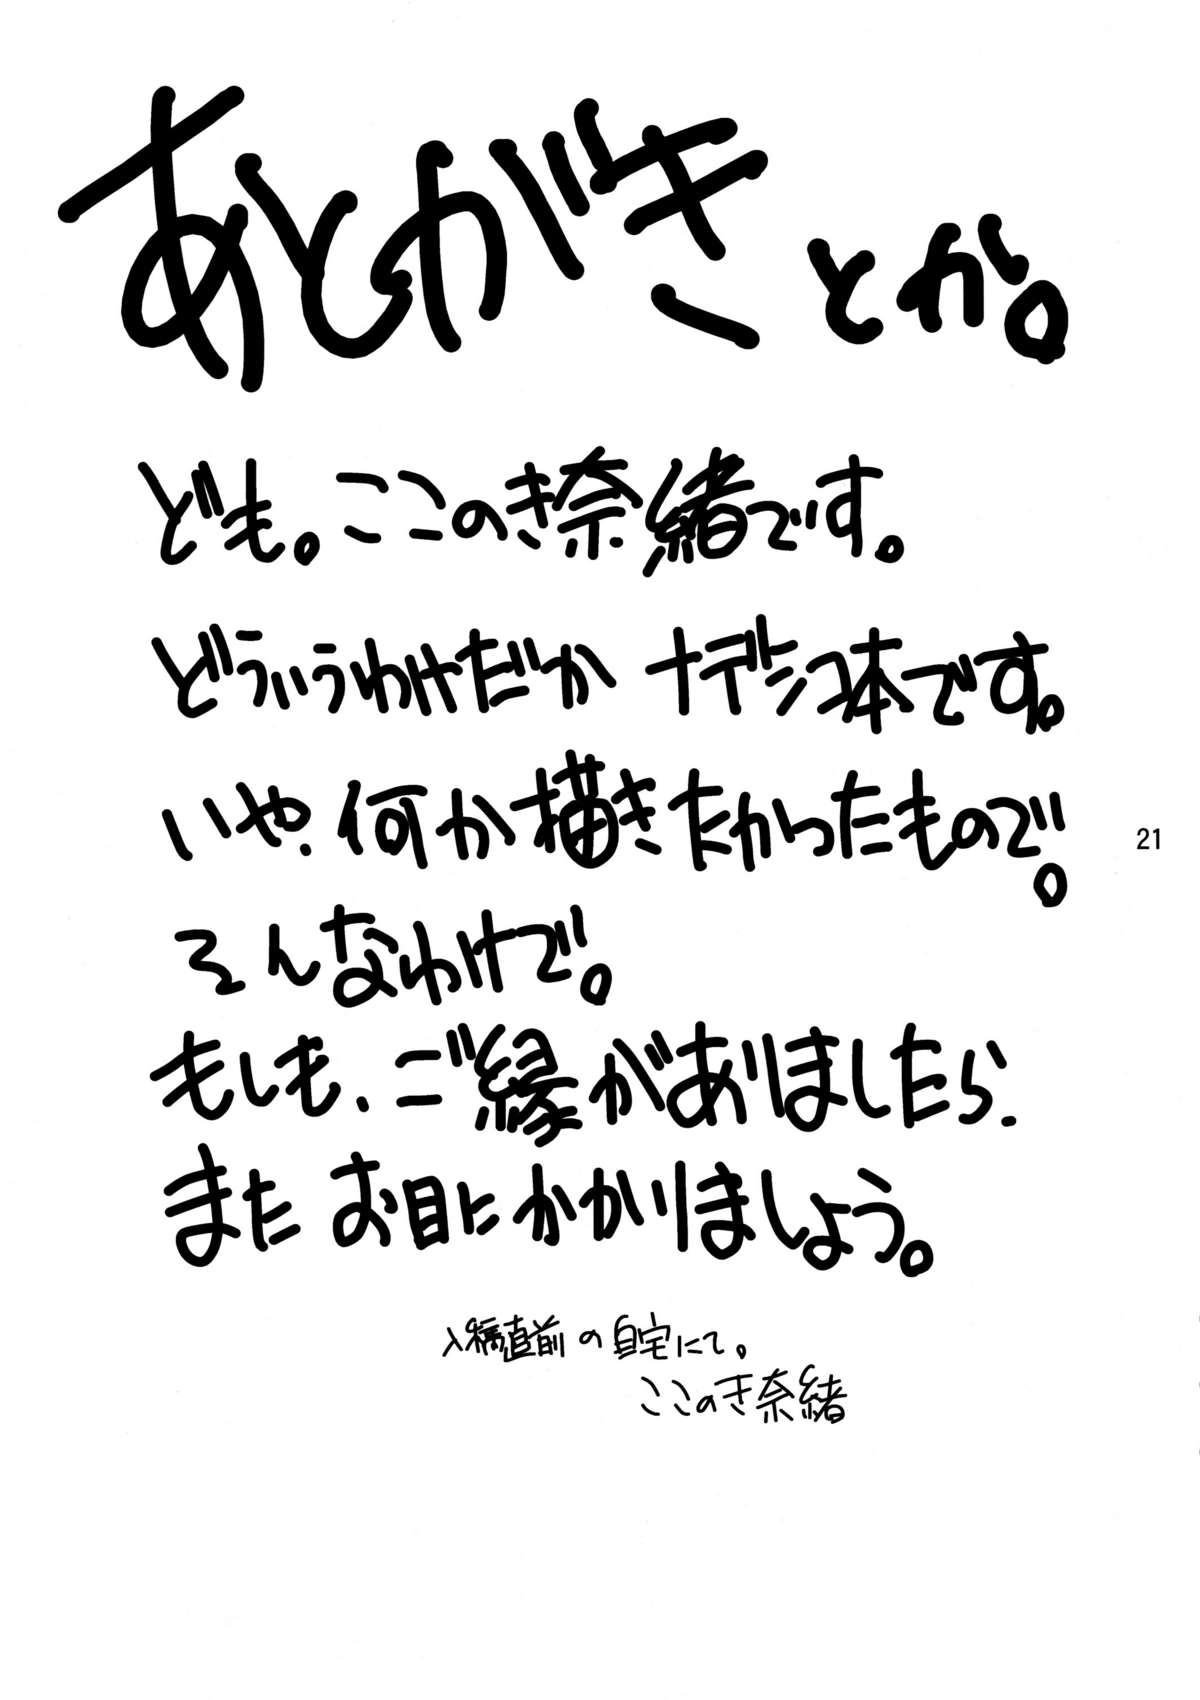 あとがきとか。
ども。ここのき奈緒です。
どういうわけだか ナデシコ本です。
いや、何か描きたかったもので。
そんなわけで。
もしも、ご縁がありましたら、
また お目にかかりましょう。
入稿直前の自宅にて。
ここのき奈緒
21